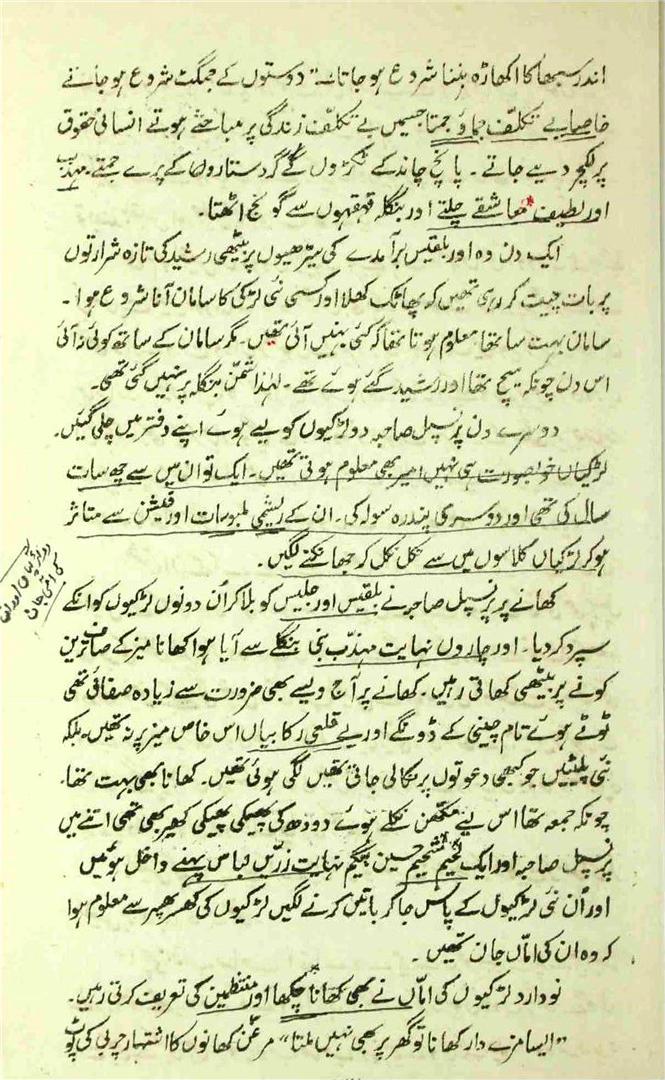 اندر سبھا کا اکھاڑہ بننا شروع ہو جاتا۔ دوستوں کے جمگٹ شروع ہو جاتے
خاصا بے تکلّف جماؤ جمتا جسمیں بے تکلّف زندگی پر مباحثے ہوتے انسانی حقوق
پر لکچر دیے جاتے۔ پانچ چاند کے ٹکڑوں کے گرد ستاروں کے پرے جمتے۔ مہذب
اور لطیف معاشقے چلتے اور بنگلہ قہقہوں سے گونج اٹھتا۔
ایک دن وہ اور بلقیس برآمدے کی سیڑھیوں پر بیٹھی رشید کی تازہ شرارتوں
پر بات چیت کر رہی تھیں کہ پھاٹک کھلا اور کسی نئی لڑکی کا سامان آنا شروع ہوا۔
سامان بہت سا تھا معلوم ہوتا تھا کہ کئی بہنیں آئی تھیں۔ مگر سامان کے ساتھ کوئی نہ آئی
اس دن چونکہ میچ تھا اور رشید گئے ہوئے تھے۔ لہٰذا شمّن بنگلہ پر نہیں گئی تھی۔
دوسرے دن پرنسپل صاحبہ دو لڑکیوں کو لیے ہوئے اپنے دفتر میں چلی گئیں۔
لڑکیاں خوبصورت ہی نہیں امیر بھی معلوم ہوتی تھیں۔ ایک تو ان میں سے چھ سات
سال کی تھی اور دوسری پندرہ سولہ کی۔ ان کے ریشمی ملبوسات اور فیشن سے متاثر
ہو کر لڑکیاں کلاسوں میں سے نکل نکل کر جھانکنے لگیں۔
کھانے پر پرنسپل صاحبہ نے بلقیس اور جلیس کو بلا کر اُن دونوں لڑکیوں کو انکے
سپرد کر دیا۔ اور چاروں نہایت مہذّب بنی بنگلے سے آیا ہوا کھانا میز کے صاف ترین
کونے پر بیٹھی کھاتی رہیں۔ کھانے پر آج ویسے بھی ضرورت سے زیادہ صفائی تھی
ٹوٹے ہوئے تام چینی کے ڈونگے اور بے قلعی رکابیاں اس خاص میز پر نہ تھیں۔ بلکہ
نئی پلیٹیں جو کبھی دعوتوں پر نکالی جاتی تھیں لگی ہوئی تھیں۔ کھانا بھی بہت تھا۔
چونکہ جمعہ تھا اس لیے مکھن نکلے ہوئے دودھ کی پھیکی پھیکی کھیر بھی تھی اتنے میں
پرنسپل صاحبہ اور ایک لحیم شحیم حسین بیگم نہایت زرّیں لباس پہنے داخل ہوئیں
اور اُن نئی لڑکیوں کے پاس جا کر باتیں کرنے لگیں لڑکیوں کی کھسر پھسر سے معلوم ہوا
کہ وہ ان کی امّاں جان تھیں۔
نووارد لڑکیوں کی امّاں نے بھی کھانا چکھا اور منتظمین کی تعریف کرتی رہیں۔
"ایسا مزے دار کھانا تو گھر پر بھی نہیں ملتا" مرغّن کھانوں کا اشتہار چربی کی پوٹ